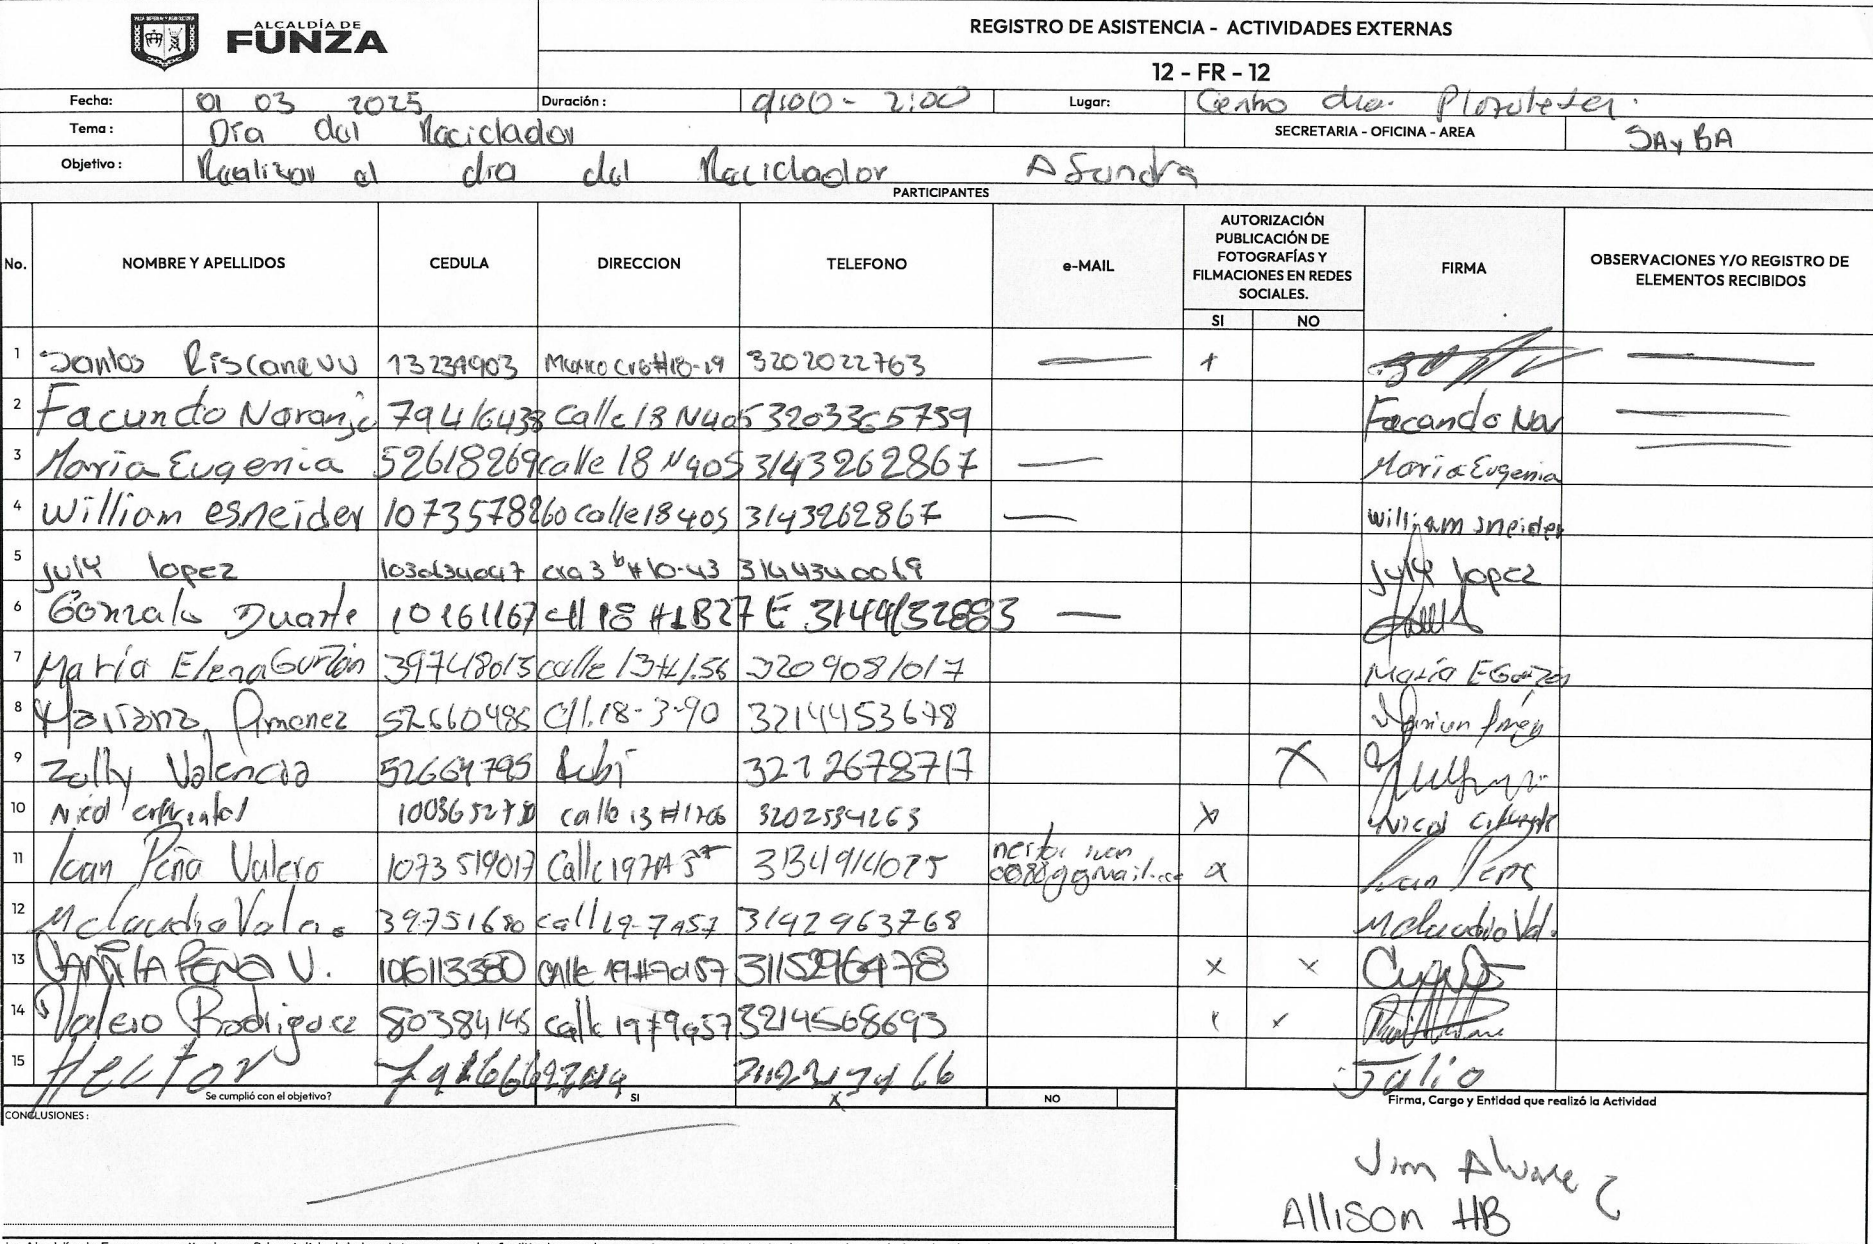 ALCALDÍA DE
FUNZA
REGISTRO DE ASISTENCIA - ACTIVIDADES EXTERNAS
12 - FR - 12
Fecha: 01 03 2025 Duración: 9:00 - 2:00 Lugar: Centro dia.
Tema: Dia del Reciclador SECRETARIA - OFICINA - AREA SAyBA
Objetivo: Realizar el dia del Reciclador A Fundra
PARTICIPANTES
No. NOMBRE Y APELLIDOS CEDULA DIRECCION TELEFONO e-MAIL AUTORIZACIÓN PUBLICACIÓN DE FOTOGRAFÍAS Y FILMACIONES EN REDES SOCIALES. FIRMA OBSERVACIONES Y/O REGISTRO DE ELEMENTOS RECIBIDOS
SI NO
1 Santos 3202022763 +
2 Facundo Naranjo 79416438 Calle 18 N405 3203365759 Facando Nar
3 Maria Eugenia 52618269 calle 18 N405 3143262867 Maria Eugenia
4 William esneider 1073578260 calle 18 405 3143262867 William sneider
5 July lopez cra 3 b #10-43 3144340069 July lopez
6 Gonzalo Duarte 10161167 cll 18 #1B27 E 3144132883
7 María Elena Garzón 39748015 calle 13#1.56 3209081017 María E Garzon
8 Mariana Jimenez 52660485 Cll.18-3-90 3214453678
9 Zully Valencia 52664795 X
10 Nicol calle 13 3202534263 X Nicol
11 Ivan Peña Valero 1073519017 3134914075 nestor ivan x Ivan Peña
12 Mclaudia Vale. 39.751680 call 19-7A57 3142963768 Mclaudia Val.
13 CAMILA PEÑA V. 106113380 calle 19#7a57 3115296478 x x
14 Valero Rodriguez 80384145 3214568693
15 Hector Julio
Se cumplió con el objetivo? SI X NO Firma, Cargo y Entidad que realizó la Actividad
CONCLUSIONES:
Jim Alvarez
Allison HB